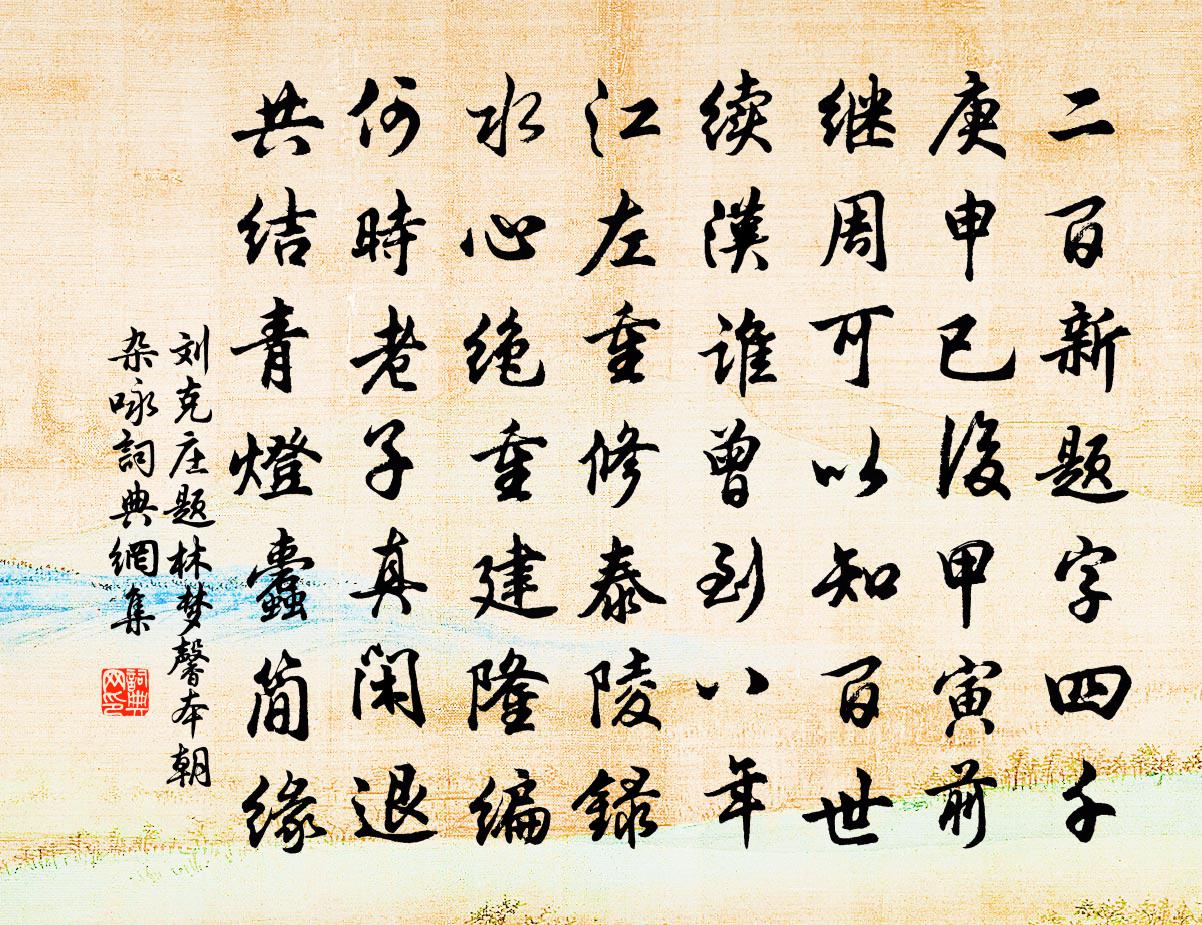 二百新题字四千
庚申已後甲寅前
继周可以知百世
续漢谁曾到八年
江左重修泰陵録
水心绝重建隆编
何時老子真闲退
共结青燈蠹简缘
刘克庄题林梦馨本朝
杂咏詞典網集
詞典
网印